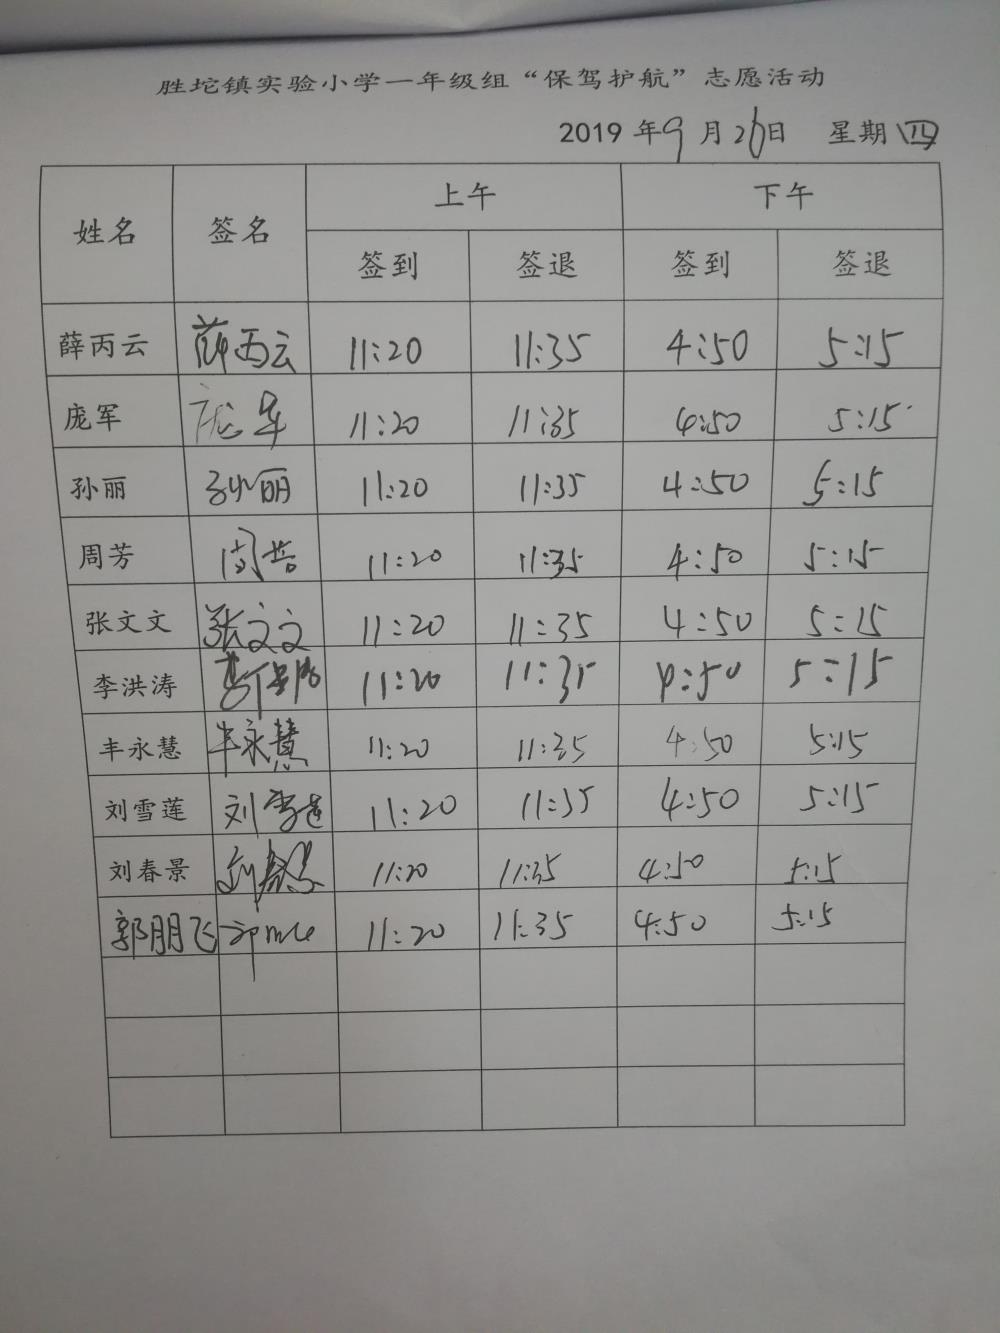 胜坨镇实验小学一年级组“保驾护航”志愿活动
2019 年 9 月 26 日 星期 四
姓名 签名 上午 下午
签到 签退 签到 签退
薛丙云 薛丙云 11:20 11:35 4:50 5:15
庞军 庞军 11:20 11:35 4:50 5:15
孙丽 孙丽 11:20 11:35 4:50 5:15
周芳 周芳 11:20 11:35 4:50 5:15
张文文 张文文 11:20 11:35 4:50 5:15
李洪涛 11:20 11:35 4:50 5:15
丰永慧 丰永慧 11:20 11:35 4:50 5:15
刘雪莲 刘雪莲 11:20 11:35 4:50 5:15
刘春景 刘春景 11:20 11:35 4:50 5:15
郭朋飞 11:20 11:35 4:50 5:15